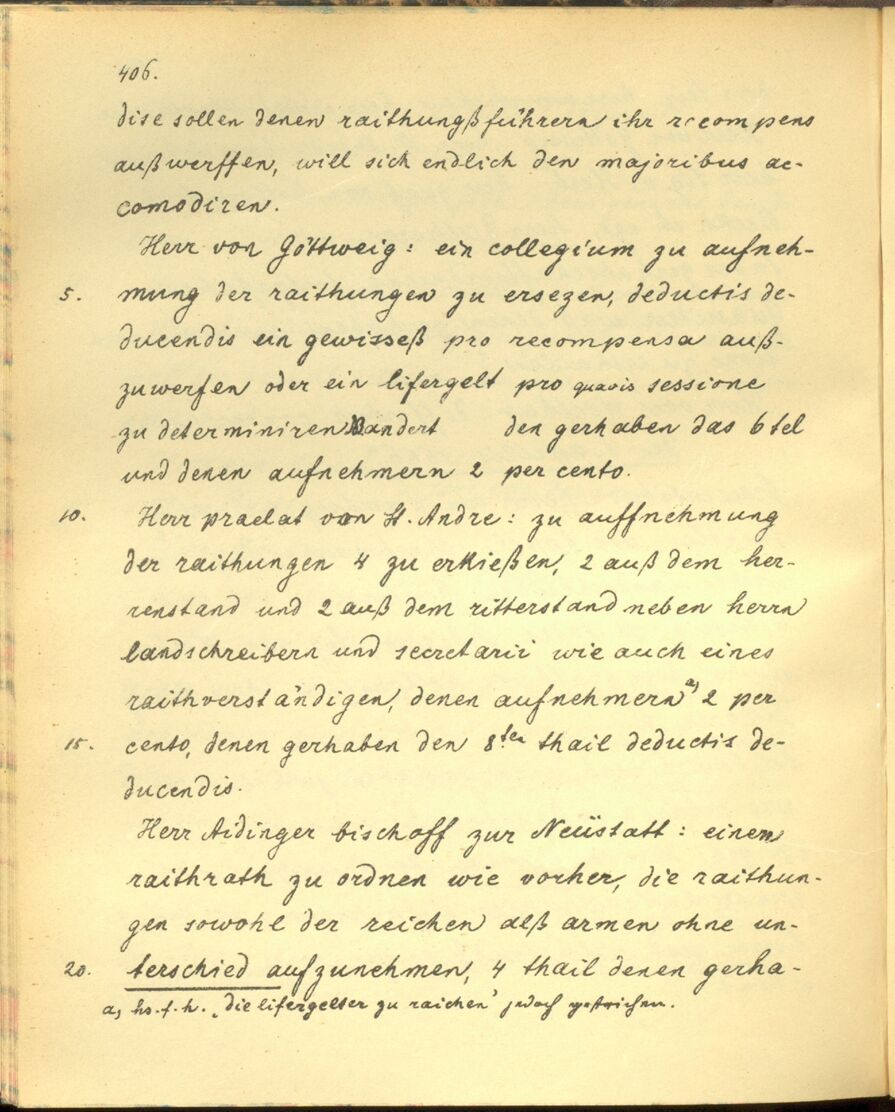 406.
dise sollen denen raithungßführern ihr recompens
außwerffen, will sich endlich den majoribus ac-
comodiren.
Herr von Göttweig: ein collegium zu aufneh-
5. mung der raithungen zu ersezen, deductis de-
ducendis ein gewisseß pro recompensa auß-
zuwerfen oder ein lifergelt pro quavis sessione
zu determiniren andert den gerhaben das 6tel
und denen aufnehmern 2 per cento.
10. Herr praelat von St. Andre: zu auffnehmung
der raithungen 4 zu erkießen, 2 auß dem her-
renstand und 2 auß dem ritterstand neben herrn
landschreibern und secretarii wie auch eines
raithverständigen, denen aufnehmern a) 2 per
15. cento, denen gerhaben den 8ten thail deductis de-
ducendis.
Herr Aidinger bischoff zur Neüstatt: einem
raithrath zu ordnen wie vorher, die raithun-
gen sowohl der reichen alß armen ohne un-
20. terschied aufzunehmen, 4 thail denen gerha-
a) hs. f. h. „die lifergelter zu raichen" jedoch gestrichen.